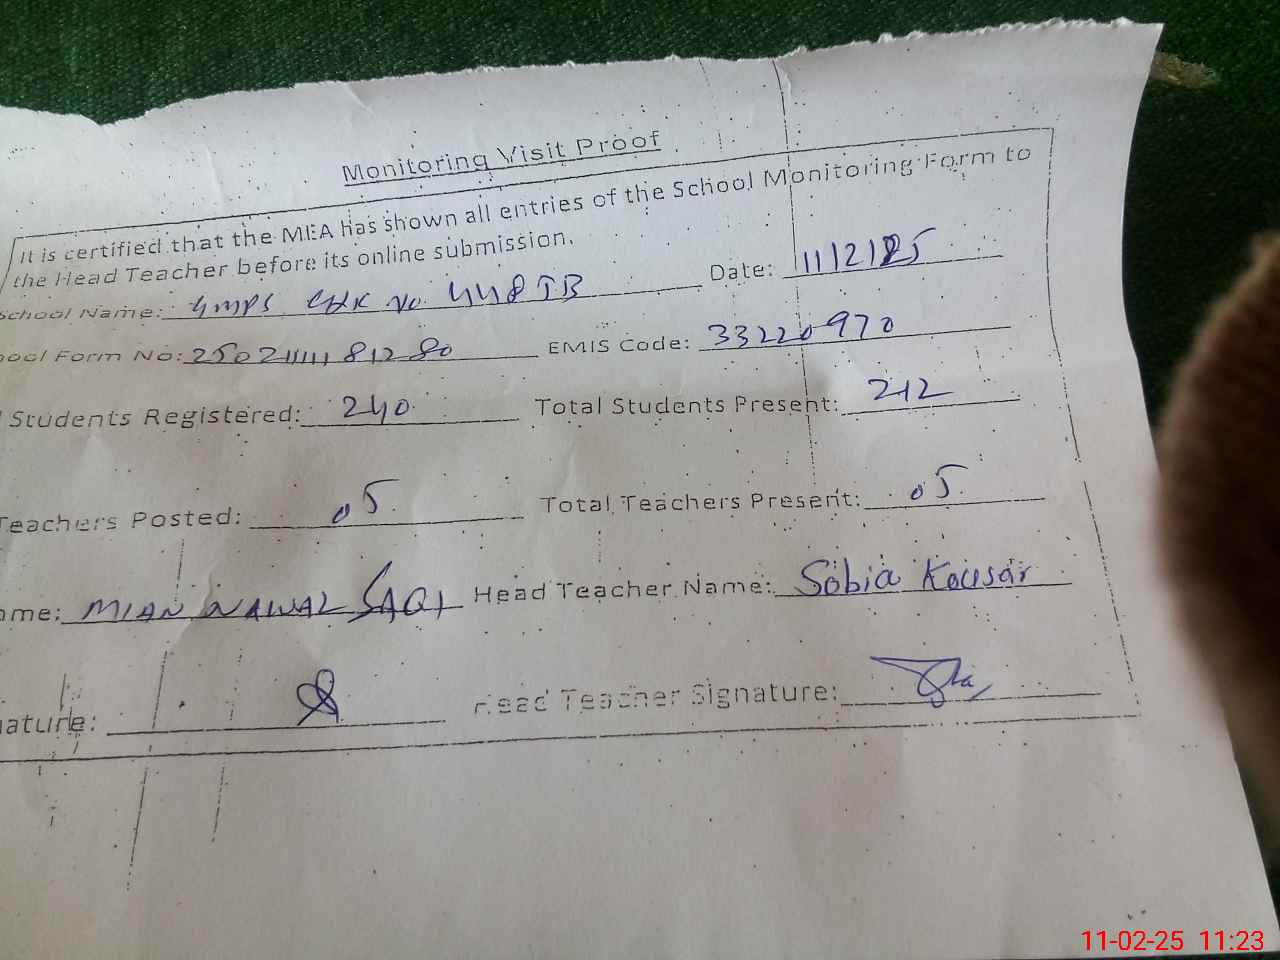 Monitoring Visit Proof
It is certified that the MEA has shown all entries of the School Monitoring Form to
the Head Teacher before its online submission.
School Name: GMPS CHK No. 448JB Date: 11/2/25
ool Form No: EMIS Code: 33220970
Students Registered: 240 Total Students Present: 212
Teachers Posted: 05 Total Teachers Present: 05
ame: MIAN NAWAL SAQI Head Teacher Name: Sobia Kousar
ature: Head Teacher Signature:
11-02-25 11:23